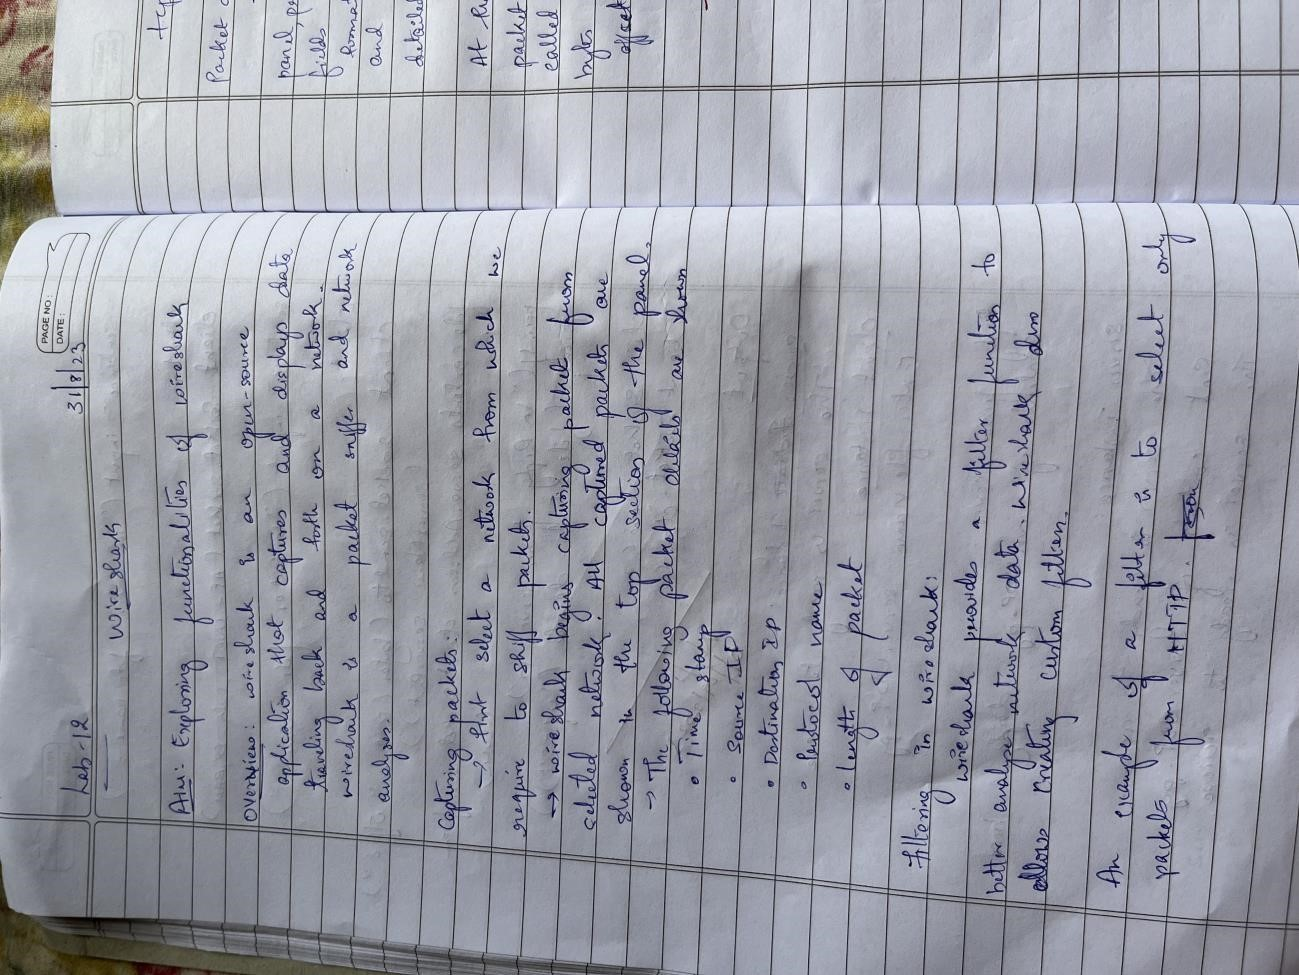 PAGE NO:
DATE:
31/8/23
Lab-12
Wireshark
Aim: Exploring functionalities of wireshark
Overview: wireshark is an open-source
application that captures and displays data
traveling back and forth on a network.
wireshark is a packet sniffer and network
analyzer.
Capturing packets:
→ first select a network from which we
require to sniff packets.
→ wireshark begins capturing packet from
selected network. All captured packets are
shown in the top section of the panel.
→ The following packet details are shown
• Time stamp
• Source IP
• Destination IP
• Protocol name
• Length of packet
filtering in wireshark:
wireshark provides a filter function to
better analyse network data. wireshark also
allows creating custom filters.
An example of a filter is to select only
packets from HTTP.
Packet
panel, pa
fields
format
and
detailed
At
packet
called
bytes
offset